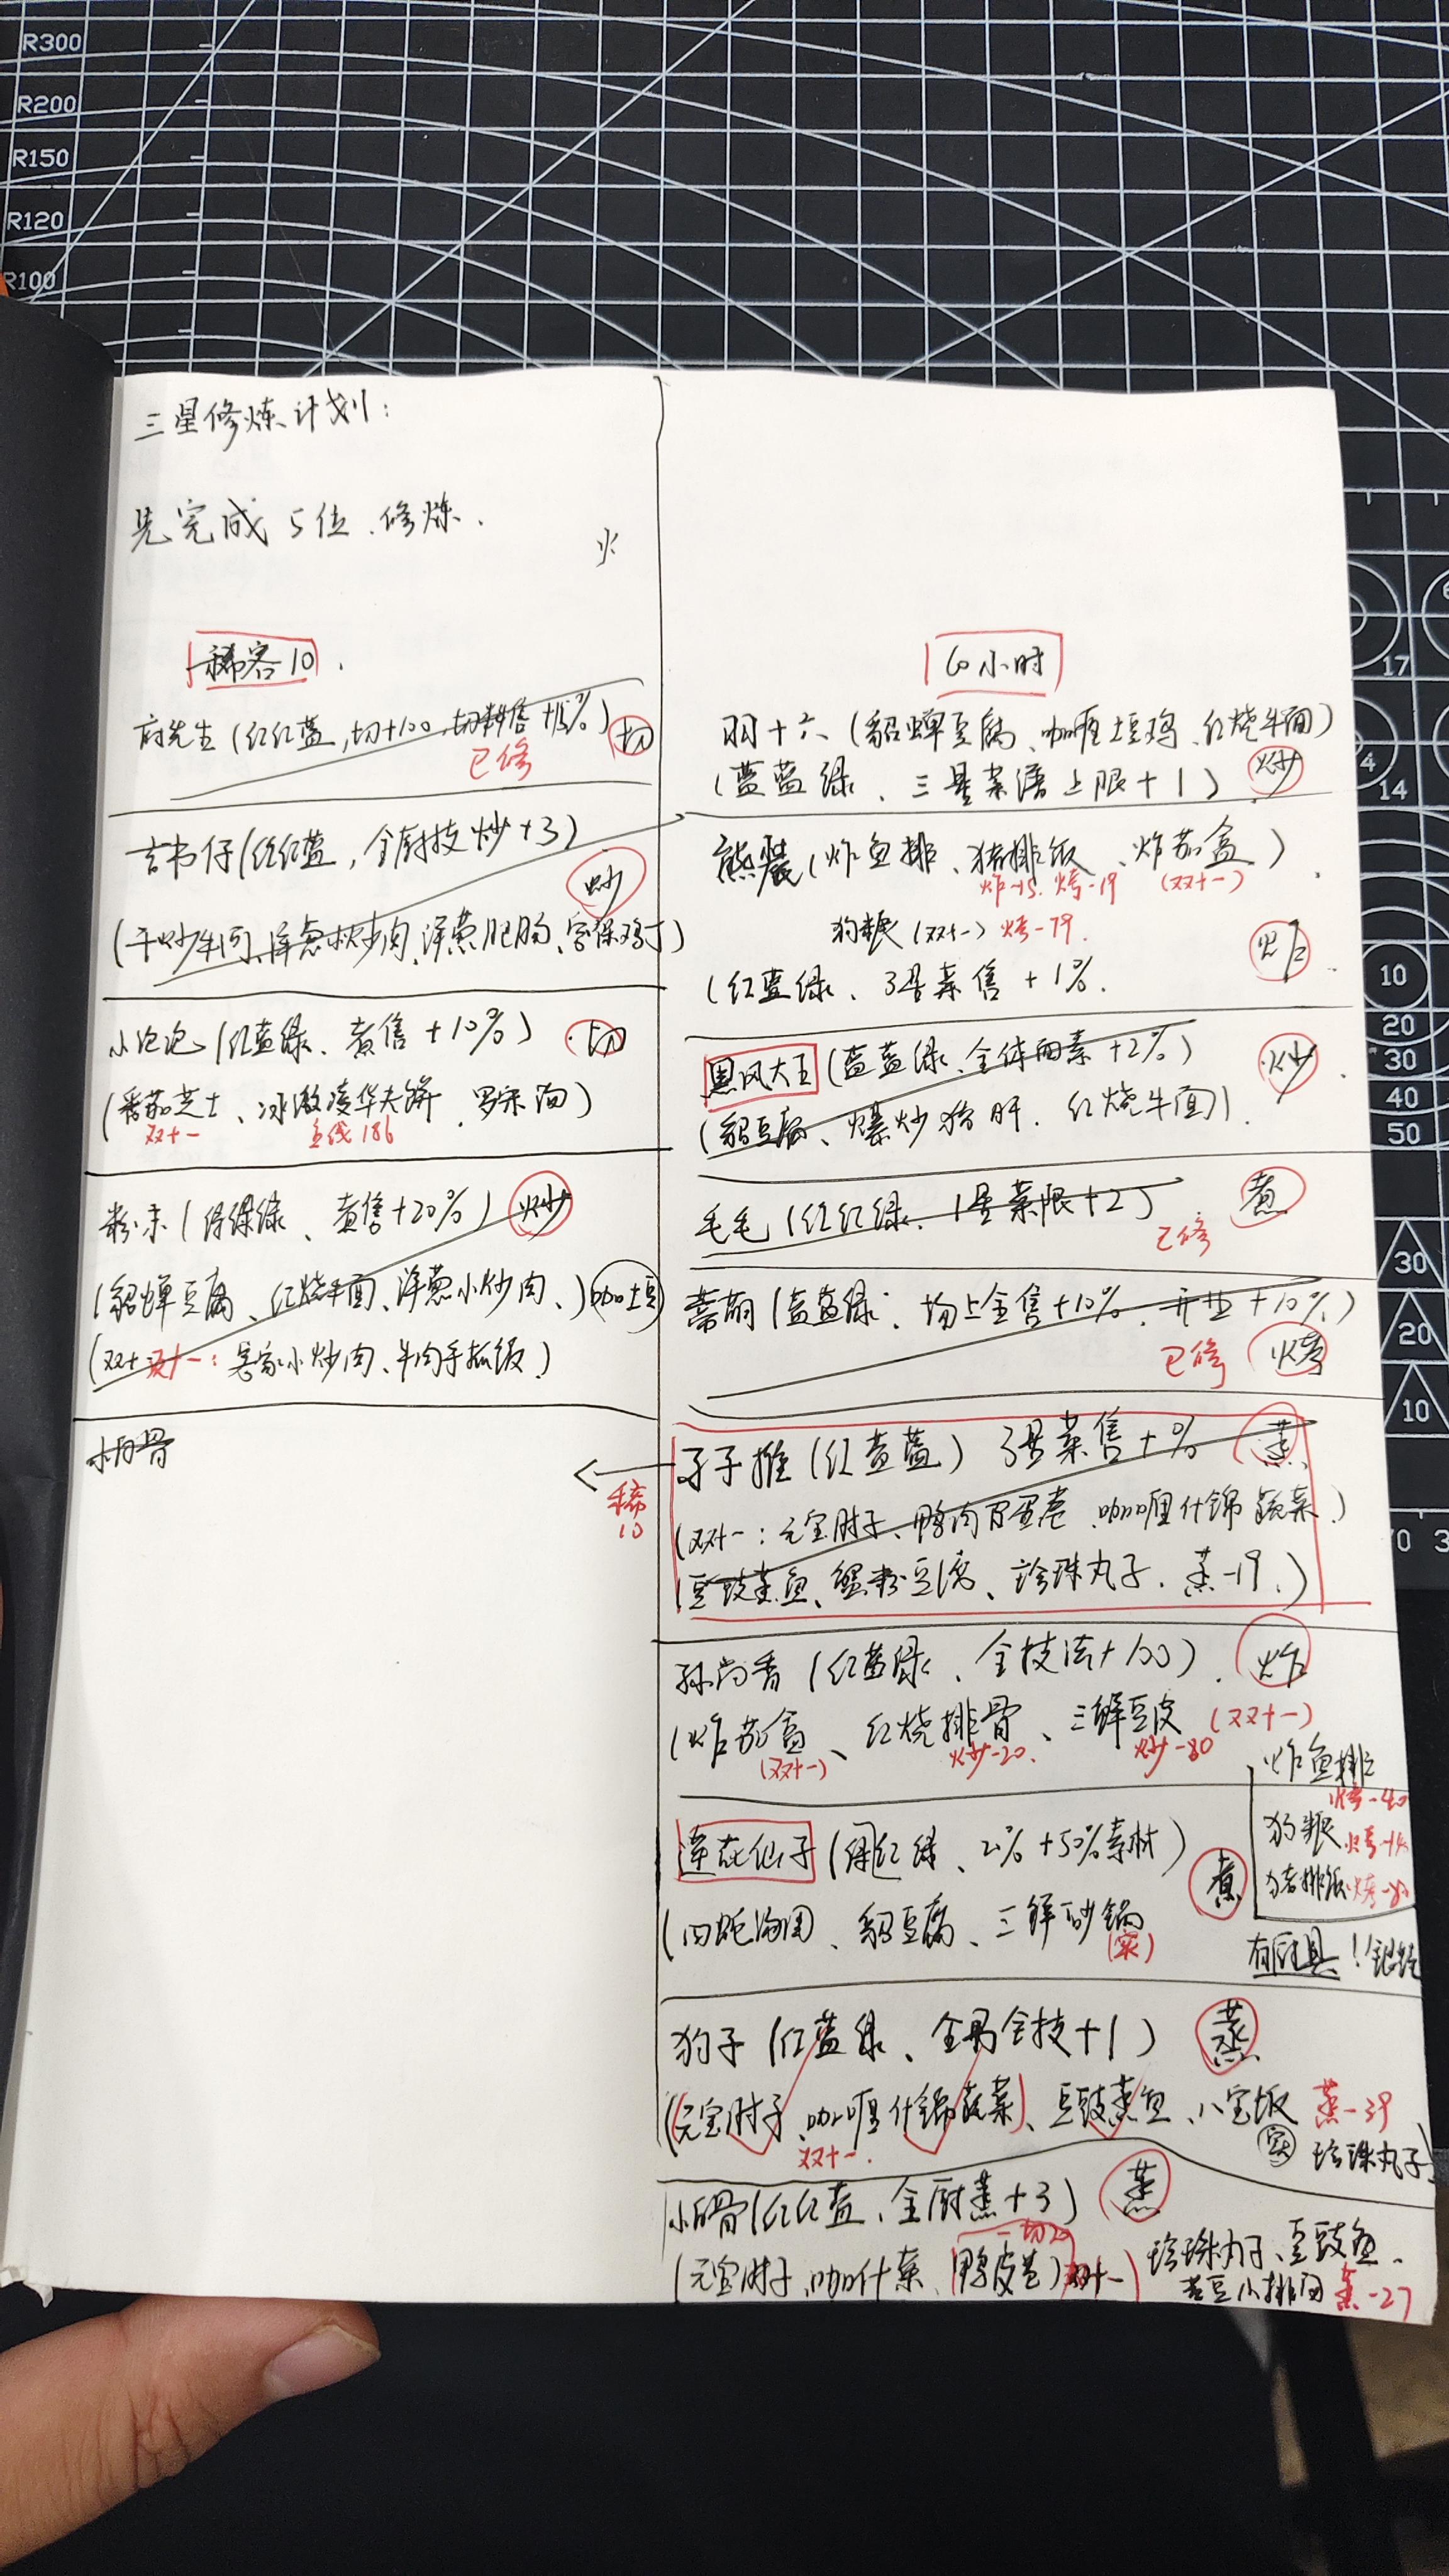 R300
R200
R150
R120
R100
三星修炼计划:
先完成5位.修炼.
火
稀客10.
府先生(红红蓝,切+100,切料售+15%) 切
已修
古书仔(红红蓝,全厨技炒+3)
炒
(干炒牛河、洋葱小炒肉、洋葱肥肠、宫保鸡丁)
小泡泡(红蓝绿、煮售+10%) 切
(番茄芝士、冰激凌华夫饼、罗宋汤)
双十一 主线186
(绿绿绿、煮售+20%) 炒
(貂蝉豆腐、红烧牛面、洋葱小炒肉、)(咖土豆)
(双十一:农家小炒肉、牛肉手抓饭)
小白骨
6小时
羽十六(貂蝉豆腐、咖喱土豆鸡、红烧牛面)
(蓝蓝绿、三星菜谱上限+1) 炒
熊裳(炸鱼排、猪排饭、炸茄盒)
炸-15. 烤-19 (双十一)
狗粮(双十一) 烤-79.
炸
(红蓝绿、3号菜售+1%.
黑风大王(蓝蓝绿、全体因素+2%) 炒
(貂豆腐、爆炒猪肝、红烧牛面).
毛毛(红红绿、1星菜限+2) 煮
已修
蒂萌(蓝蓝绿、场上全售+10%、开业+10%)
已修 烤
子推(红蓝蓝) 3号菜售+% 蒸
稀
10
(双十一:元宝肘子、鸭肉百蛋卷、咖喱什锦蔬菜)
(豆豉蒸鱼、蟹粉豆腐、珍珠丸子. 蒸-19.)
孙尚香(红蓝绿、全技法+100). 炸
(炸茄盒、红烧排骨、三鲜豆皮 (双十一)
(双十一) 炒-20. 炒-80
炸鱼排
烤-40
狗粮 烤-
猪排饭 烤-
有厨具!
莲花仙子(绿红绿、2% +50%素材)
煮
(四蛇汤团、貂豆腐、三鲜砂锅
(实)
狗子(红蓝绿、全男全技+1) 蒸
(元宝肘子、咖喱什锦蔬菜)、豆豉蒸鱼、八宝饭 蒸-39
双十一. 实 珍珠丸子
小白骨(红红蓝、全厨蒸+3) 蒸
一切20
(元宝肘子、咖什菜、(鸭皮卷)双十一) 珍珠丸子、豆豉鱼、
芸豆小排闷 蒸-27
17
14
10
20
30
40
50
30
20
10